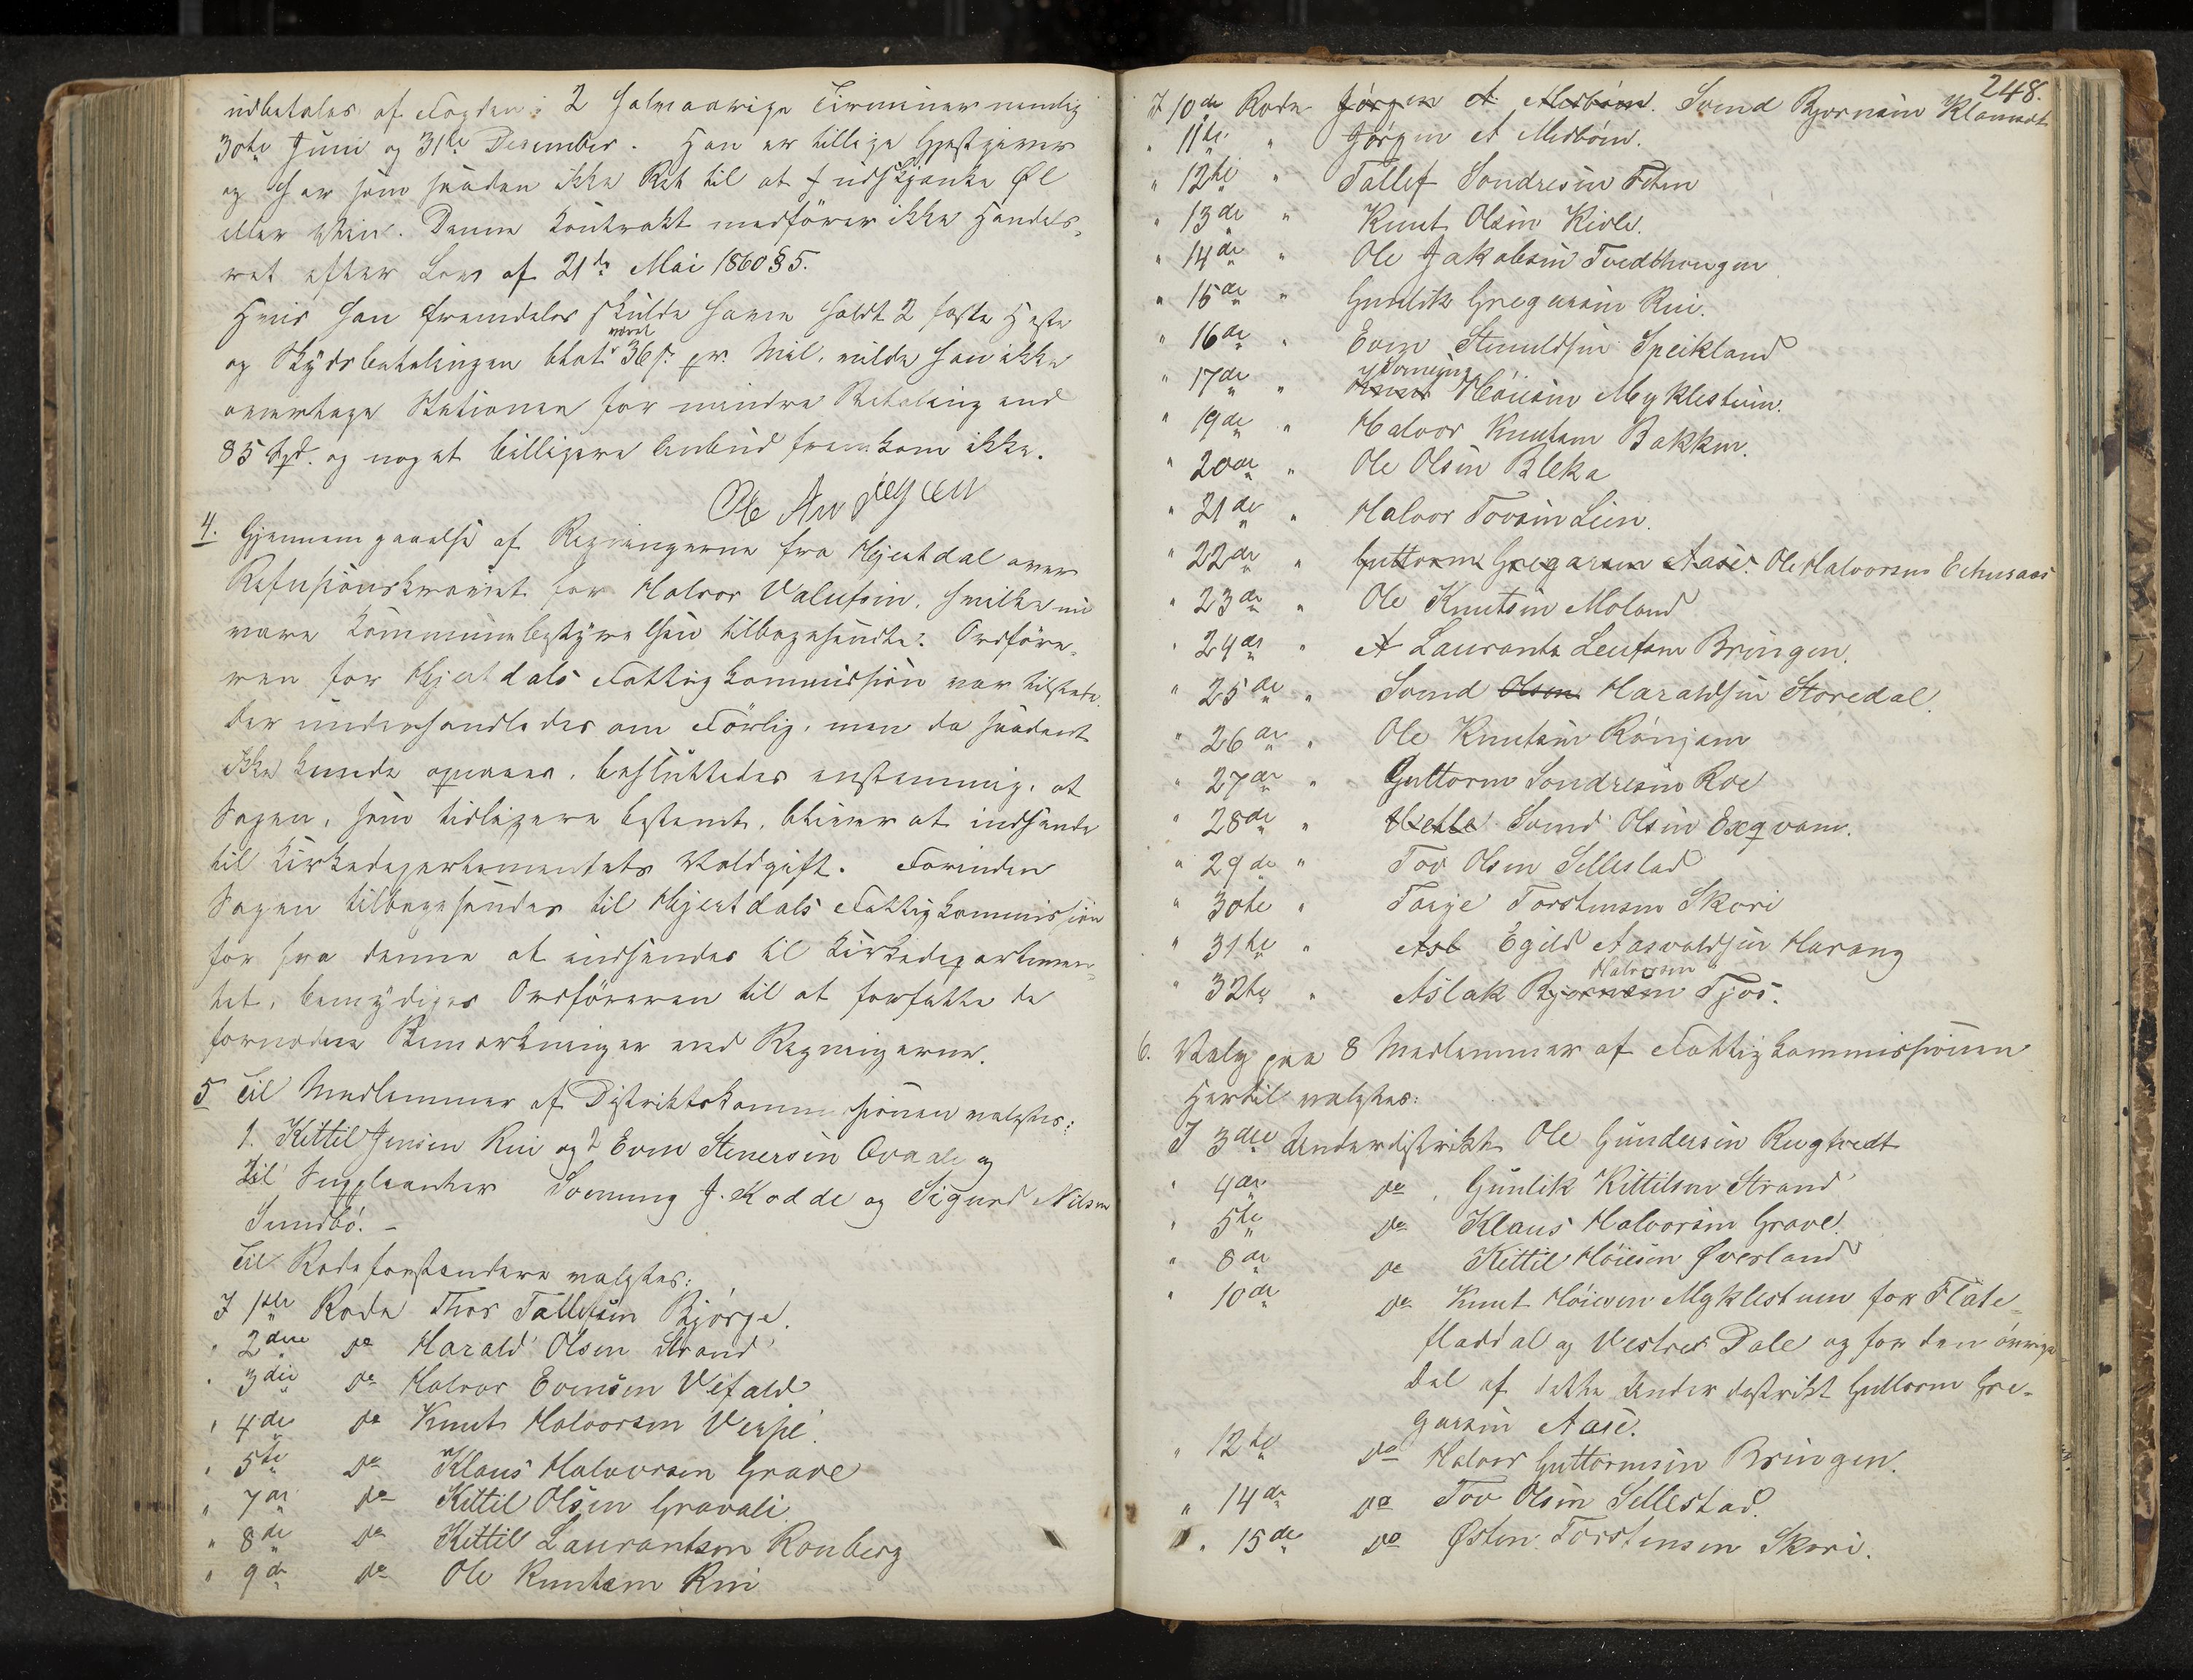 udbetales af Fogden i 2 halvaarige Terminer nemlig
30te Juni og 31te Desember. Han er tillige Gjestgiver
og har som saadan ikke Ret til at udskjænke Øl
eller Vin. Denne Kontrakt medfører ikke Handels-
ret efter Lov af 21de Mai 1860 § 5.
Hvis han fremdeles skulde have holdt 2 faste Heste
og Skydsbetalingen blot været 36 s. pr. Mil, vilde han ikke
overtage Stationen for mindre Betaling end
85 Spd. og noget billigere Anbud fremkom ikke.
Ole
4. Gjennemgaaelse af Regningerne fra Hjertdal over
Refusionskravet for Halvor Valufsin, hvilke nu
vare Kommunebestyrelsen tilbagesendte. Ordføre-
ren for Hjertdals Fattigkommission var tilstede.
Der underhandledes om Forlig, men da saadant
ikke kunde opnaaes, besluttedes enstemmig, at
Sagen, som tidligere bestemt, bliver at indsende
til Kirkedepartementets Voldgift. Forinden
Sagen tilbagesendes til Hjertdals Fattigkommission
for fra denne at indsendes til Kirkedepartemen-
tet, bemyndiges Ordføreren til at forfatte de
fornødne Bemærkninger ved Regningerne.
5 Til Medlemmer af Distriktskommissionen valgtes:
1. Kittil Jensen Rui og 2 Even Stenersin Ovaale og
Til Suppleanter Sveinung J. Kodde og Sigurd Nilsen
Sundbö. -
Til Rodeforstandere valgtes:
I 1ste Rode Thor Tallefsen Bjørge.
" 2den do Harald Olsen Strand
" 3die do Halvor Evensen Vefald
" 4de do Knut Halvorsen Verpe.
" 5te do Klaus Halvorsen Grave
" 7de do Kittil Olsen Gravali
" 8de do Kittil Laurantsen Ronberg
" 9de do Ole Knutsen Rui
248.
I 10de Rode Jørgen A Medböen. Svend Bjornsin Klomset
" 11te " Jørgen A Medböen.
" 12te " Tallef Sondresin
" 13de " Knut Olsin Kivle.
" 14de " Ole Jakobsin Tvedthougen
" 15de " Gunlik Gregarsin Rui.
" 16de " Even Steinuldsin Speikland
" 17de " Knut Sveinung Höiesin Myklestuin.
" 19de " Halvor Knutsen Bakken.
" 20de " Ole Olsin Bleka
" 21de " Halvor Tovsin Lien.
" 22de " Guttorm Gregarsen Aase. Ole Halvorsen
" 23de " Ole Knutsin Moland
" 24de " A Laurants Leufsen Bringen.
" 25de " Svend Olsen Haraldsin Storedal.
" 26de " Ole Knutsin Rönjom
" 27de " Guttorm Sondresin Roe
" 28de " Svend Olsin
" 29de " Tov Olsen Sellestad
" 30te " Torje Torstensen Skori
" 31te " Asl Egild Aasvaldsin Harang
" 32te " Aslak Bjornsen Halvorsen Tjos.
6. Valg paa 8 Medlemmer af Fattigkommissionen
Hertil valgtes:
I 3die Underdistrikt Ole Gundersin Rugtvedt
" 4de do. Gunlik Kittilsen Strand
" 5te do Klaus Halvorsin Grave.
" 8de do Kittil Höiesen Øverland
" 10de do Knut Höiesen Myklestuen for Flate-
fladdal og Vestre Dale og for den övrige
Del af dette Underdistrikt Guttorm Gre-
garsin Aase.
" 12te do Halvor Guttormsin Bringen.
" 14de do Tov Olsen Sellestad.
" 15de do Østen Torstensen Skori.